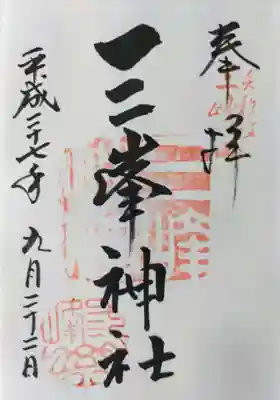 奉拝
三峯神社
平成二十七年 九月二十二日